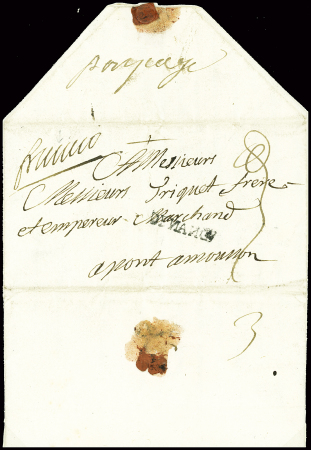 franco
A Messieurs
Messieurs Triquet frere
et empereur Marchand
apont amousson
3